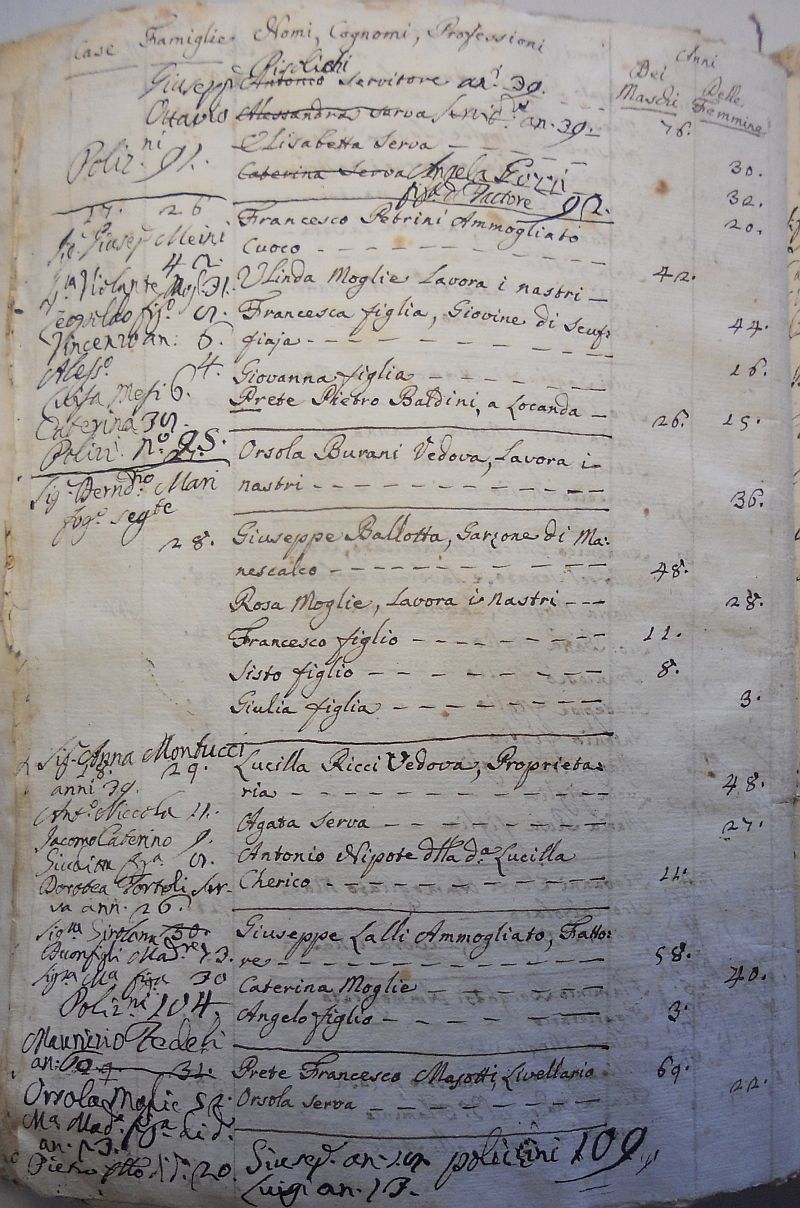 Case Famiglie Nomi, Cognomi, Professioni
Anni
Dei Maschi
Delle Femmine
Pisolichi
Giusepp.e Antonio Servitore an.i 39.
Ottavio Alessandra Serva an. 39. 76.
Elisabetta Serva 30.
Poliz.ni 91. Caterina Serva Angela 32.
Fattore 92.
27. 26 Francesco Petrini Ammogliato 20.
Sig. Giusep.e Meini Cuoco 42.
42.
Violante Mog. 31. Ulinda Moglie Lavora i nastri 44.
Leopoldo fig.o Francesca figlia, Giovine di Scuf:
Vincenzo an. 6. fiaja 16.
Aless.o 4. Giovanna figlia 15.
Mesi 6. Prete Pietro Baldini, a Locanda 26.
Caterina
Poliz. n.o 95. Orsola Burani Vedova, Lavora i
nastri 36.
Sig. Bernd.no Mari
fog.o seg.te
28. Giuseppe Ballotta, Garzone di Ma:
nescalco 48.
Rosa Moglie, Lavora i nastri 28.
Francesco figlio 11.
Sisto figlio 8.
Giulia figlia 3.
Sig.a Anna Montucci
29. Lucilla Ricci Vedova, Proprieta:
anni 39. ria 48.
Ant.o Niccola 11. Agata Serva 27.
Jacomo Caterino 9. Antonio Nipote d.lla d.a Lucilla
Cherico 11.
Dorotea Fortoli Ser-
va ann. 26.
Sig.ra Girolama 30. Giuseppe Lalli Ammogliato, Fatto:
Buonfigli Madre 73. re 58.
Sig.ra M.a figa 30 Caterina Moglie 40.
Poliz.ni 104. Angelo figlio 3.
Maurizio Fedeli
an: 60 31. Prete Francesco Masotti, Livellario 69.
Orsola Moglie 52. Orsola Serva 22.
M.a Mad.a
an. 13.
Pietro 20. Giusep.e an. polizini 109
Luigi an. 13.